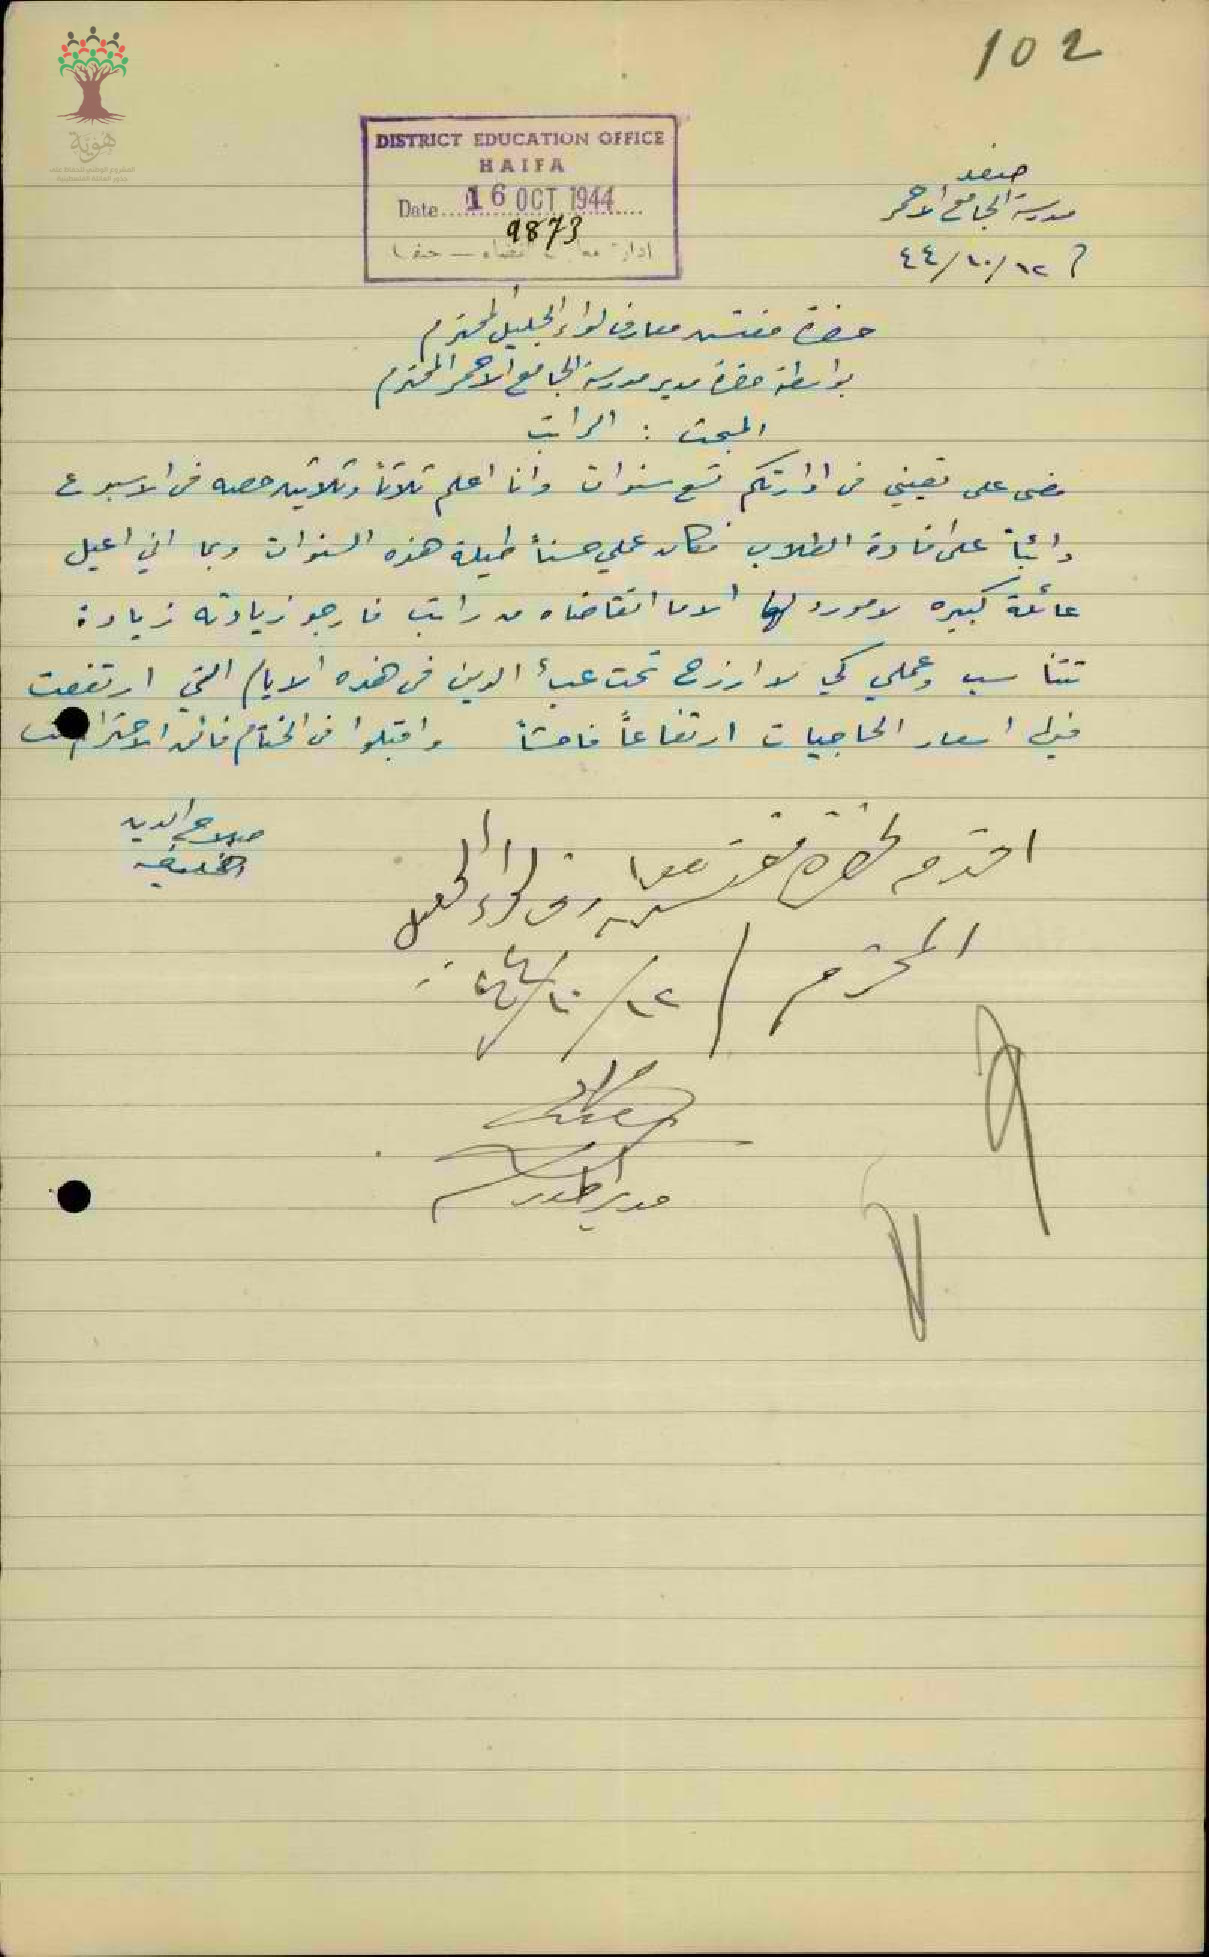 102
هَوِيَّة
DISTRICT EDUCATION OFFICE
HAIFA
Date 16 OCT 1944
9873
ادارة معارف القضاء — حيفا
صفد
مدرسة الجامع الاحمر
١٢/١٠/٤٤
حضرة مفتش معارف لواء الجليل المحترم
بواسطة حضرة مدير مدرسة الجامع الاحمر المحترم
المبحث : الراتب
مضى على تعييني في ادارتكم تسع سنوات وانا اعلم ثلاثاً وثلاثين حصه في الاسبوع
دائباً على افادة الطلاب فكان عملي حسناً طيلة هذه السنوات وبما اني اعيل
عائلة كبيره لا مورد لها الا ما اتقاضاه من راتب فارجو زيادته زيادة
تتناسب وعملي كي لا ارزح تحت عبأ الدين في هذه الايام التي ارتفعت
فيها اسعار الحاجيات ارتفاعاً فاحشاً واقبلوا في الختام فائق الاحترام
صلاح الدين
اقدم لحضرة مفتش معارف لواء الجليل
المحترم / ١٢/١٠/٤٤
مدير المدرسة